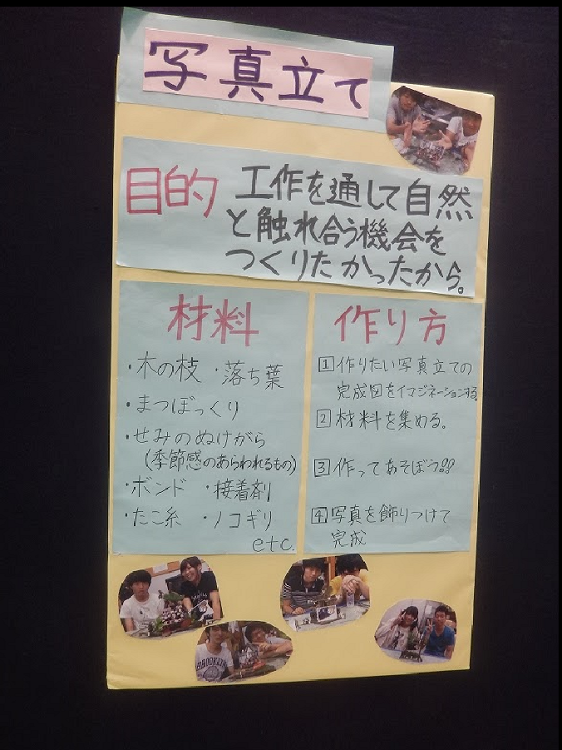 写真立て
目的 工作を通して自然
と触れ合う機会を
つくりたかったから。
材料
・木の枝 ・落ち葉
・まつぼっくり
・せみのぬけがら
(季節感のあらわれるもの)
・ボンド ・接着剤
・たこ糸 ・ノコギリ
etc.
作り方
1 作りたい写真立ての
完成図をイマジネーションする
2 材料を集める。
3 作ってあそぼう!!
4 写真を飾りつけて
完成
BROOKLYN